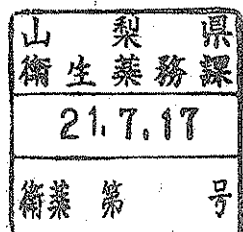 山梨県
衛生薬務課
21.7.17
衛薬第　　号